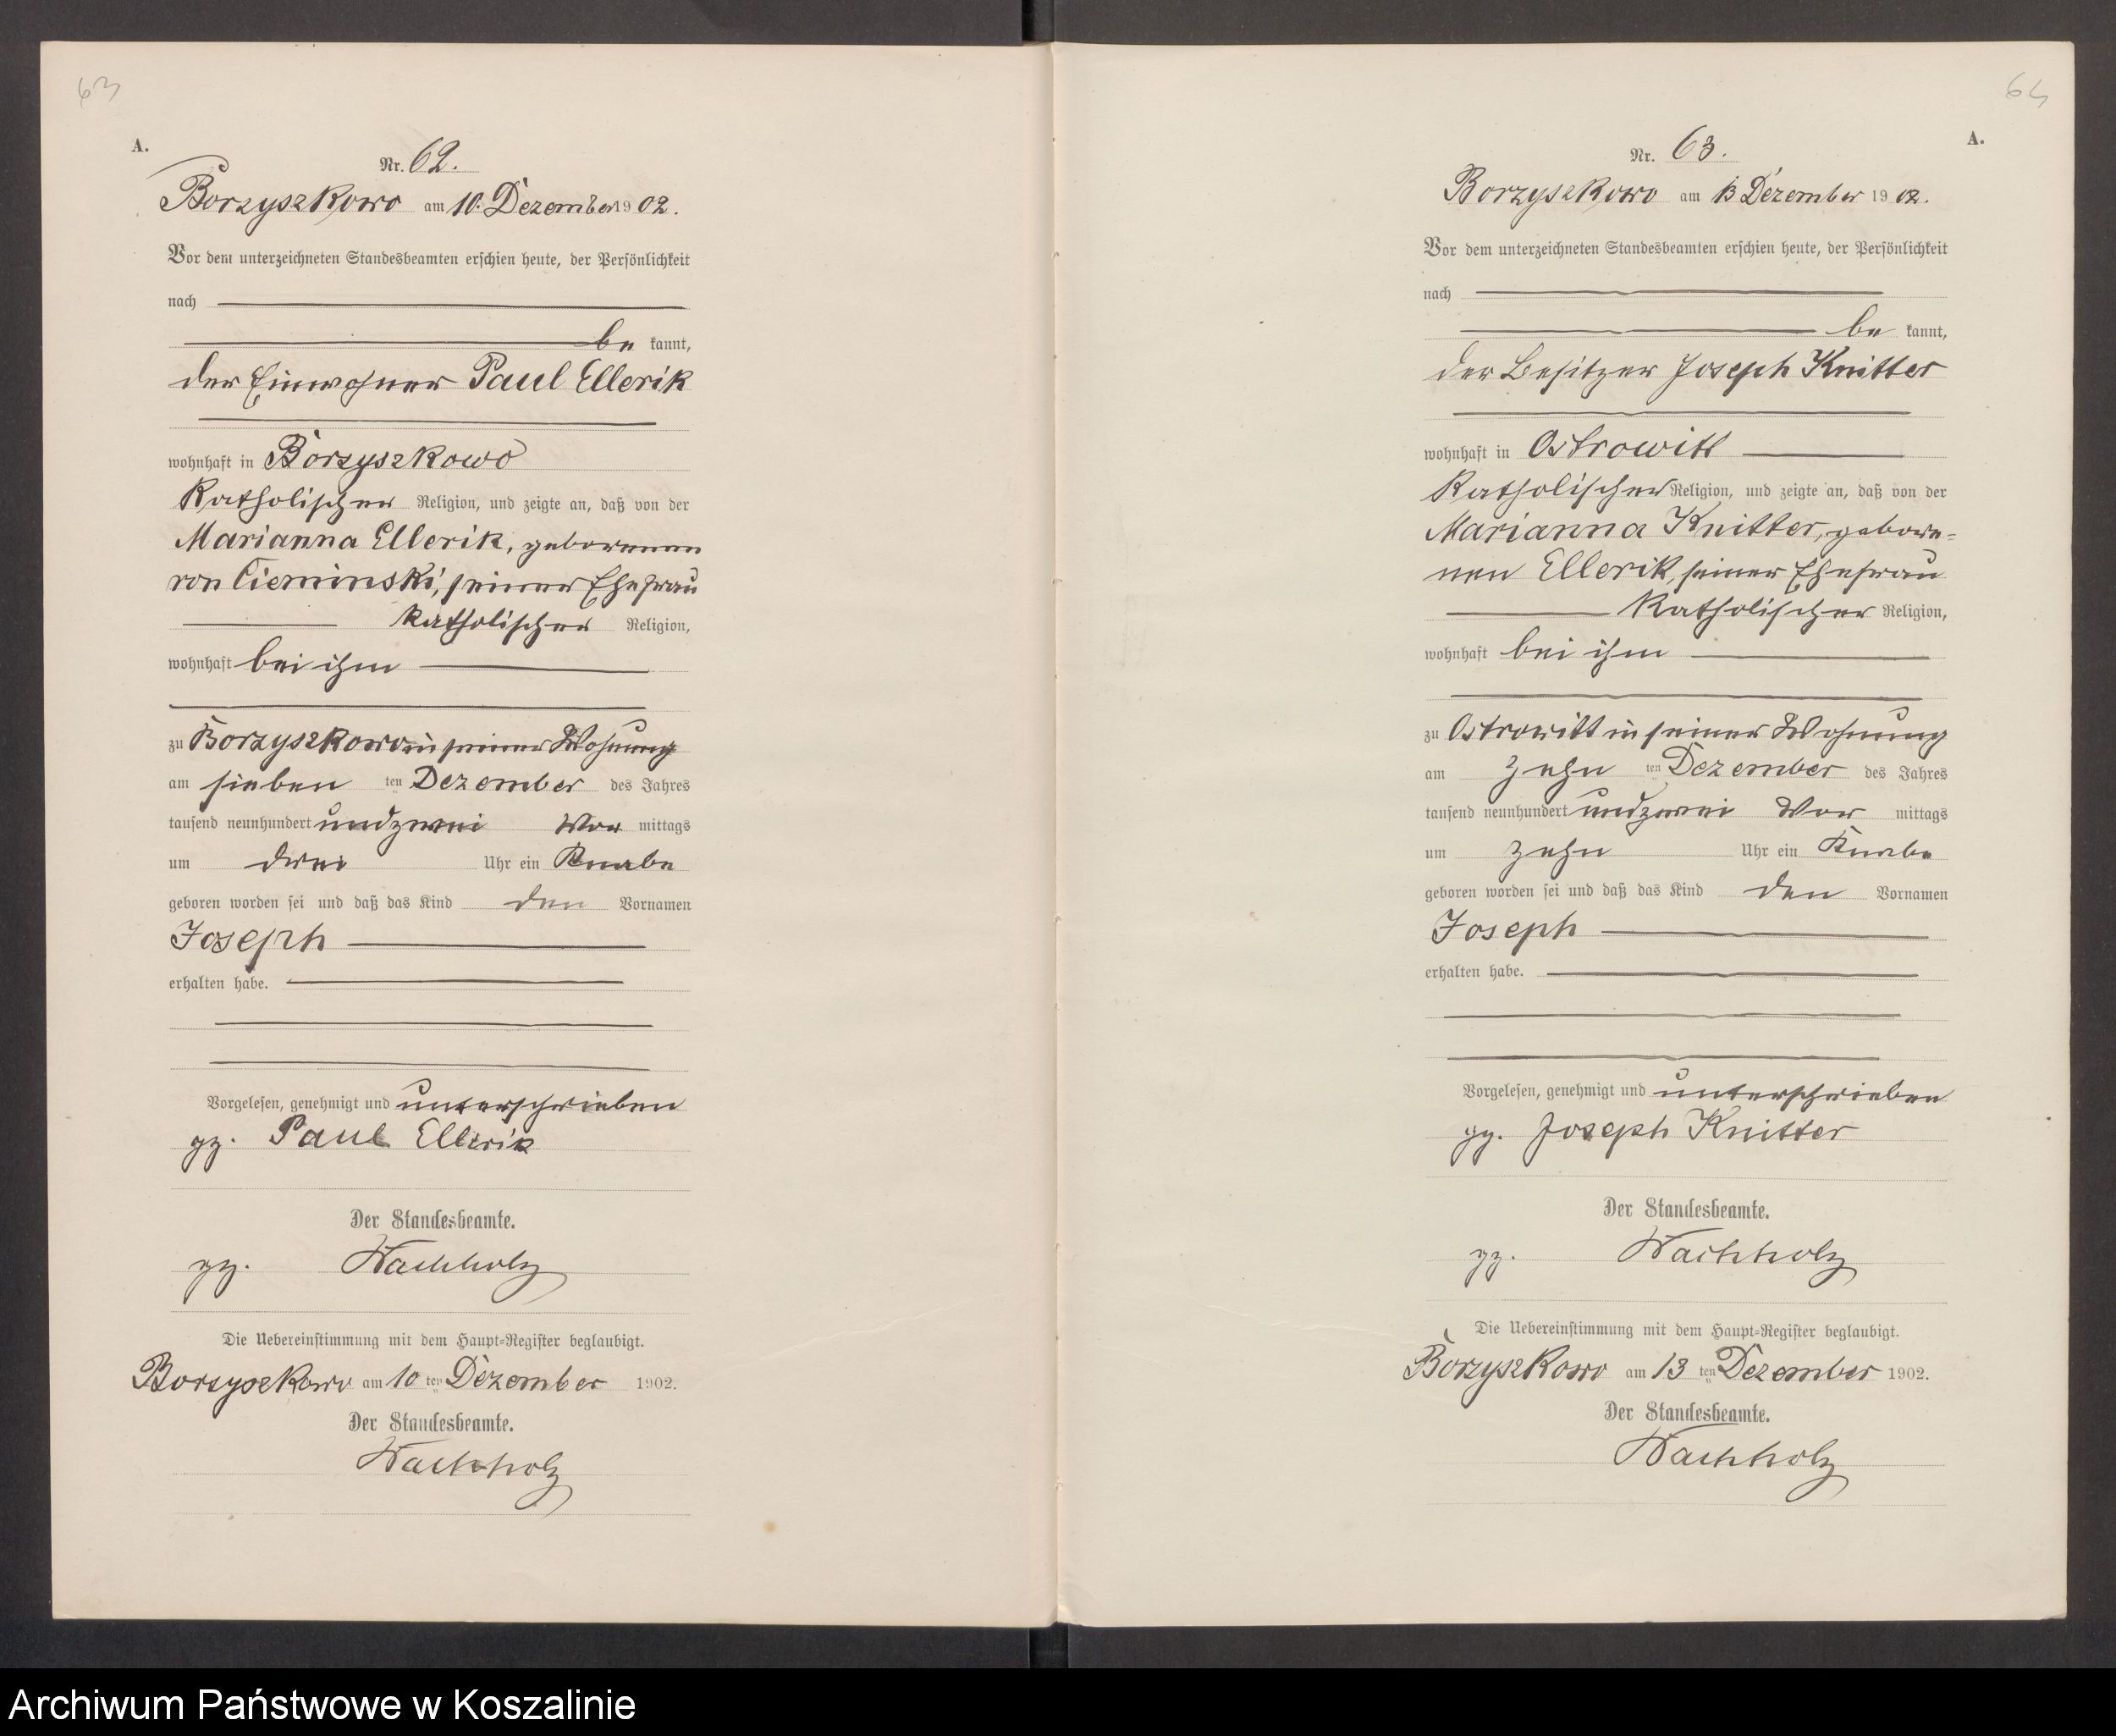 63
A.
Nr. 62.
Borzyszkowo am 10. Dezember 1902.
Vor dem unterzeichneten Standesbeamten erschien heute, der Persönlichkeit
nach
be kannt,
der Einwohner Paul Ellerik
wohnhaft in Borzyszkowo
katholischer Religion, und zeigte an, daß von der
Marianna Ellerik, geborenen
von Cieminski, seiner Ehefrau
katholischer Religion,
wohnhaft bei ihm
zu Borzyszkowo in seiner Wohnung
am sieben ten Dezember des Jahres
tausend neunhundert und zwei Vor mittags
um drei Uhr ein Knabe
geboren worden sei und daß das Kind den Vornamen
Joseph
erhalten habe.
Vorgelesen, genehmigt und unterschrieben
gz. Paul Ellerik
Der Standesbeamte.
gz. Wachholz
Die Uebereinstimmung mit dem Haupt=Register beglaubigt.
Borzyszkowo am 10 ten Dezember 1902.
Der Standesbeamte.
Wachholz
64
A.
Nr. 63.
Borzyszkowo am 13 Dezember 1902.
Vor dem unterzeichneten Standesbeamten erschien heute, der Persönlichkeit
nach
be kannt,
der Besitzer Joseph Knitter
wohnhaft in Ostrowitt
katholischer Religion, und zeigte an, daß von der
Marianna Knitter, gebore=
nen Ellerik, seiner Ehefrau
katholischer Religion,
wohnhaft bei ihm
zu Ostrowitt in seiner Wohnung
am zehn ten Dezember des Jahres
tausend neunhundert und zwei Vor mittags
um zehn Uhr ein Knabe
geboren worden sei und daß das Kind den Vornamen
Joseph
erhalten habe.
Vorgelesen, genehmigt und unterschrieben
gz. Joseph Knitter
Der Standesbeamte.
gz. Wachholz
Die Uebereinstimmung mit dem Haupt=Register beglaubigt.
Borzyszkowo am 13 ten Dezember 1902.
Der Standesbeamte.
Wachholz
Archiwum Państwowe w Koszalinie